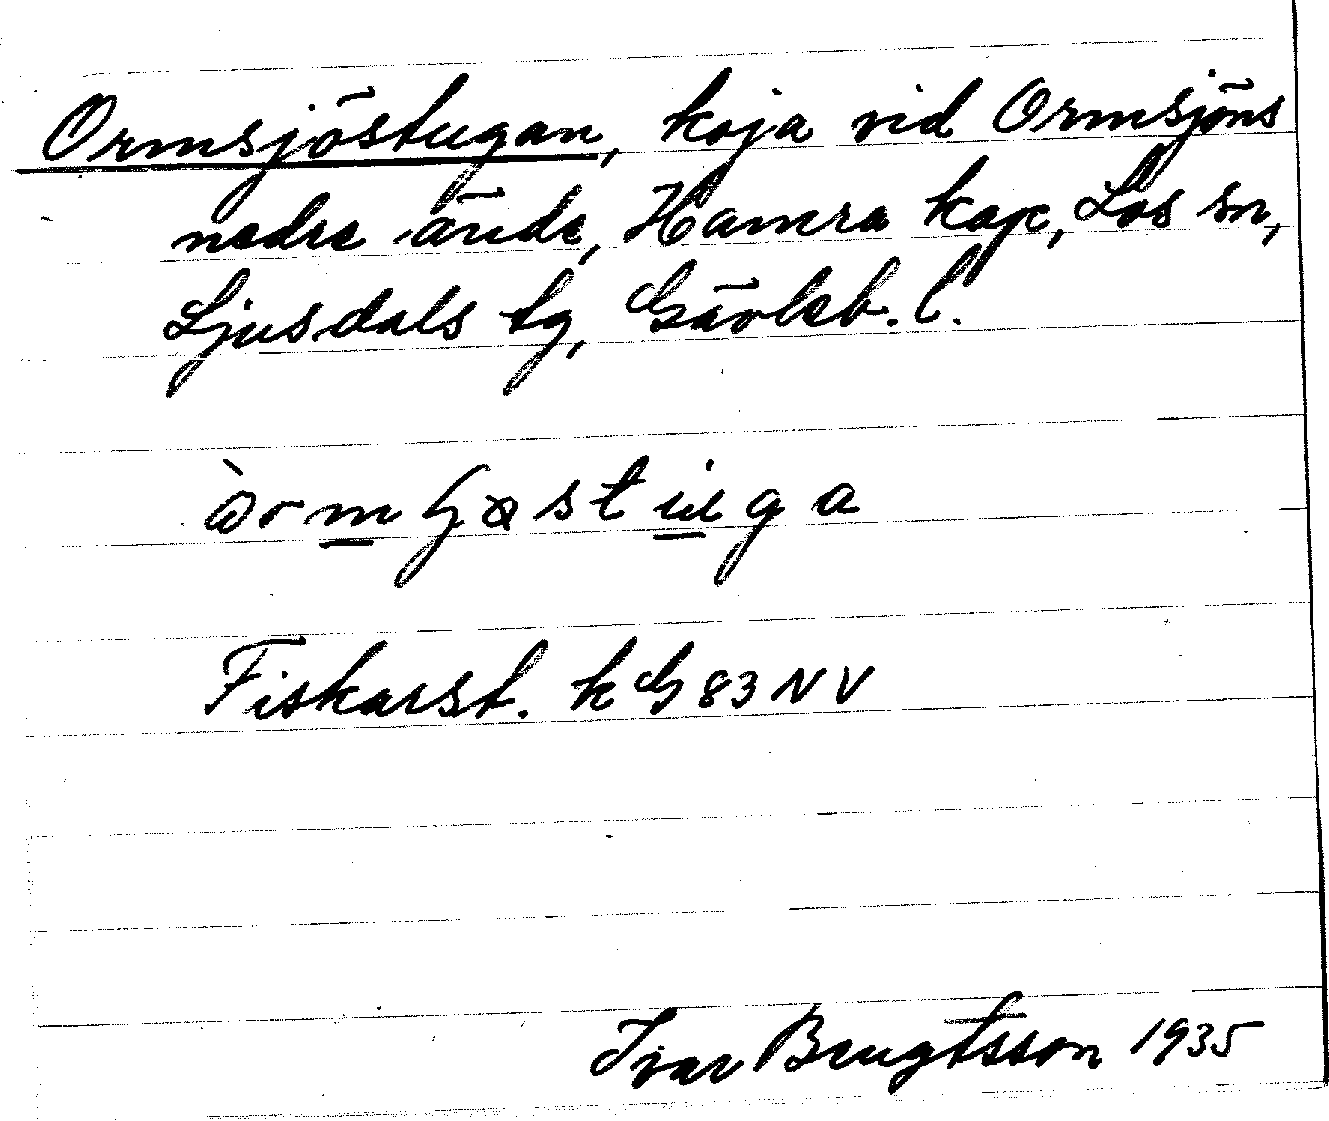 Ormsjöstugan, koja vid Ormsjöns
nedre ände, Hamra kap, Los sn,
Ljusdals tg, Gävleb. l.
Fiskarst. k G 83 NV
Ivar Bengtsson 1935